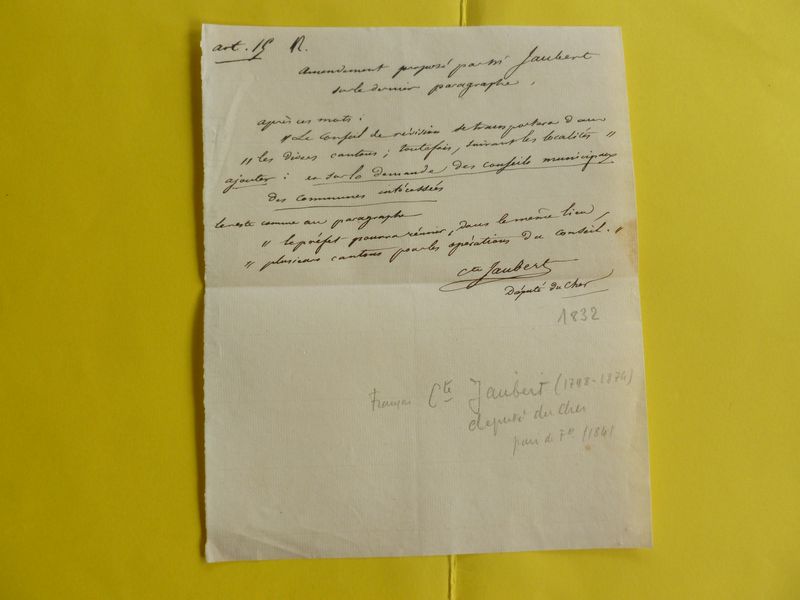 art. 15 R.
Amendement proposé par Mr Jaubert
sur le dernier paragraphe.
après ces mots :
" Le Conseil de révision se transportera dans
" les divers cantons; toutefois, suivant les localités "
ajouter : et sur la demande des conseils municipaux
des communes intéressées
le reste comme au paragraphe
" le préfet pourra réunir, dans le même lieu,
" plusieurs cantons pour les opérations du conseil. "
Cte Jaubert
Député du Cher
1832
François Cte Jaubert (1798-1874)
député du Cher
pair de Fce (184